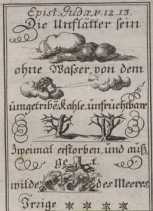 Epist. Judæ. v. 12. 13.
Die Unflätter sein
ohne Waßer, von dem
umgetribẽ Kahle, unfrüchtbare
Zweimal erstorben, und auß
ge
wilde des Meeres
Irrige